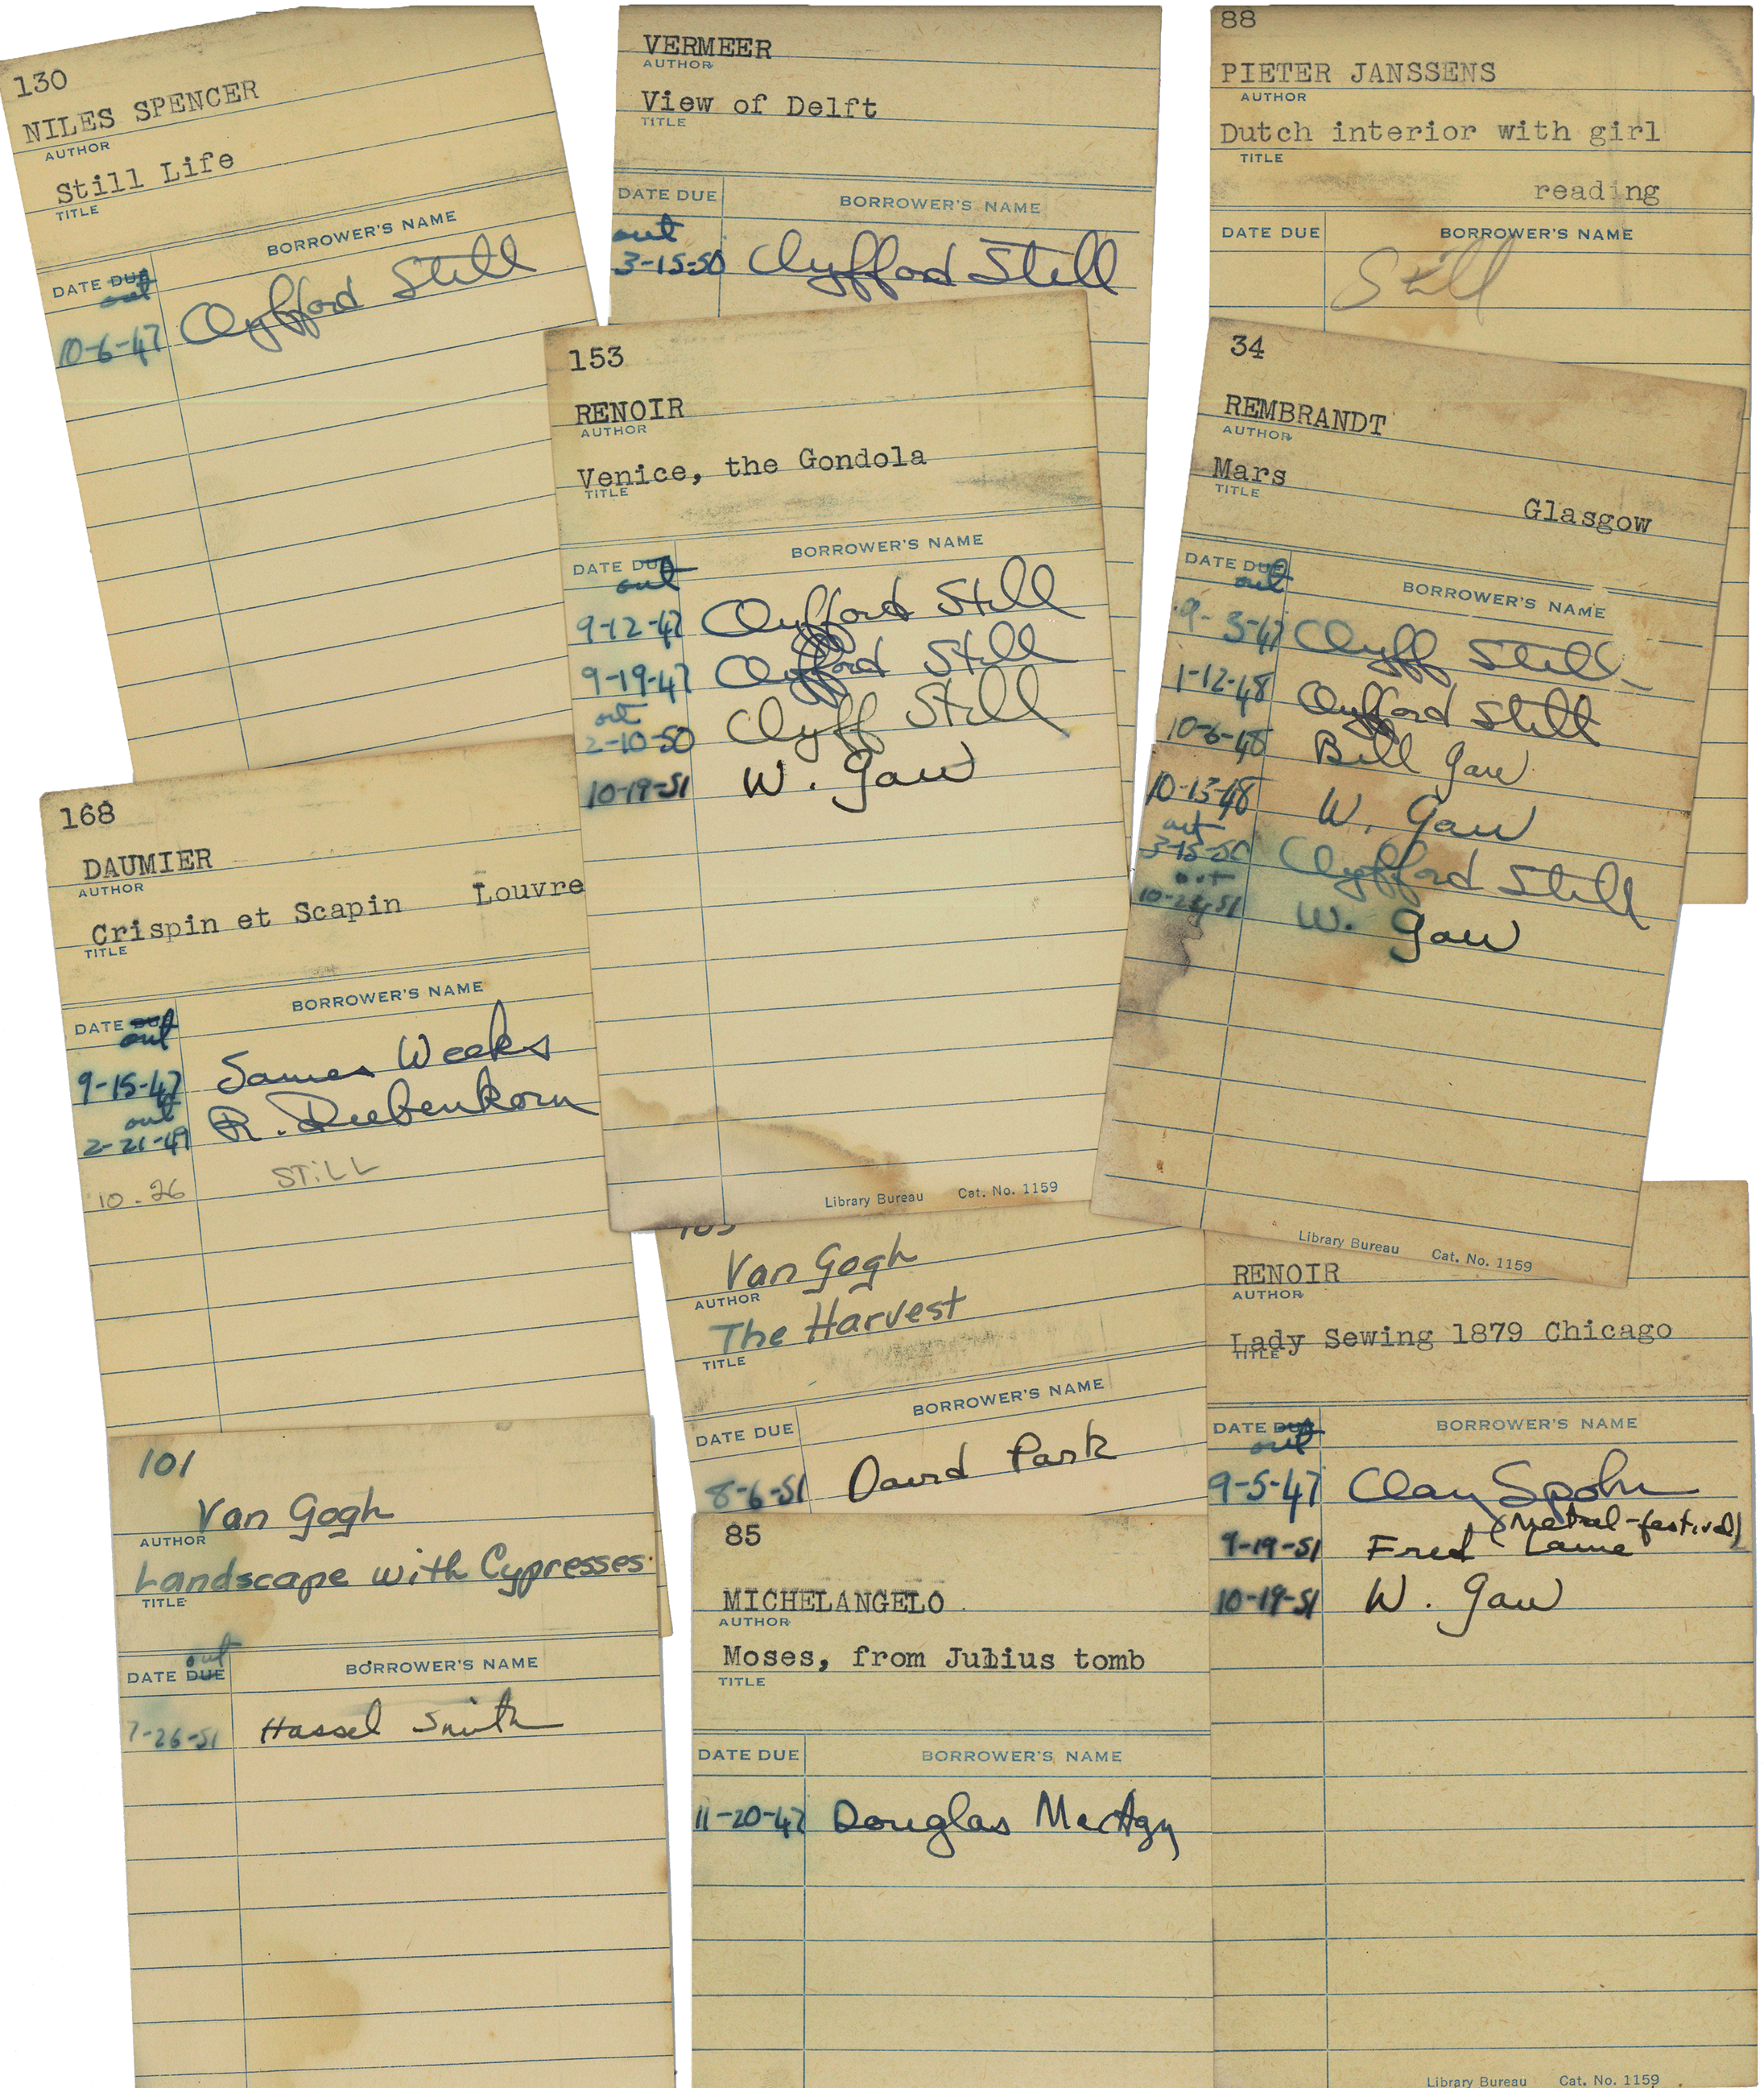 130
NILES SPENCER
AUTHOR
Still Life
TITLE
DATE DUE BORROWER'S NAME
out
10-6-47 Clyfford Still
VERMEER
AUTHOR
View of Delft
TITLE
DATE DUE BORROWER'S NAME
out
3-15-50 Clyfford Still
88
PIETER JANSSENS
AUTHOR
Dutch interior with girl
TITLE
reading
DATE DUE BORROWER'S NAME
Still
153
RENOIR
AUTHOR
Venice, the Gondola
TITLE
DATE DUE BORROWER'S NAME
out
9-12-47 Clyfford Still
9-19-47 Clyfford Still
out
2-10-50 Clyff Still
10-19-51 W. Gaw
Library Bureau Cat. No. 1159
34
REMBRANDT
AUTHOR
Mars
TITLE
Glasgow
DATE DUE BORROWER'S NAME
out
9-3-47 Clyff Still
1-12-48 Clyfford Still
10-6-48 Bill Gaw
10-13-48 W. Gaw
out
3-15-50 Clyfford Still
out
W. Gaw
Library Bureau Cat. No. 1159
168
DAUMIER
AUTHOR
Crispin et Scapin Louvre
TITLE
DATE DUE BORROWER'S NAME
out
9-15-47 James Weeks
out
2-21-49 R. Diebenkorn
10-26 STILL
Van Gogh
AUTHOR
The Harvest
TITLE
DATE DUE BORROWER'S NAME
8-6-51 David Park
RENOIR
AUTHOR
Lady Sewing 1879 Chicago
TITLE
DATE DUE BORROWER'S NAME
out
9-5-47 Clay Spohn
(Metal-festival)
9-19-51 Fred
10-19-51 W. Gaw
Library Bureau Cat. No. 1159
101
Van Gogh
AUTHOR
Landscape with Cypresses
TITLE
out
DATE DUE BORROWER'S NAME
7-26-51 Hassel Smith
85
MICHELANGELO
AUTHOR
Moses, from Julius tomb
TITLE
DATE DUE BORROWER'S NAME
11-20-47 Douglas MacAgy